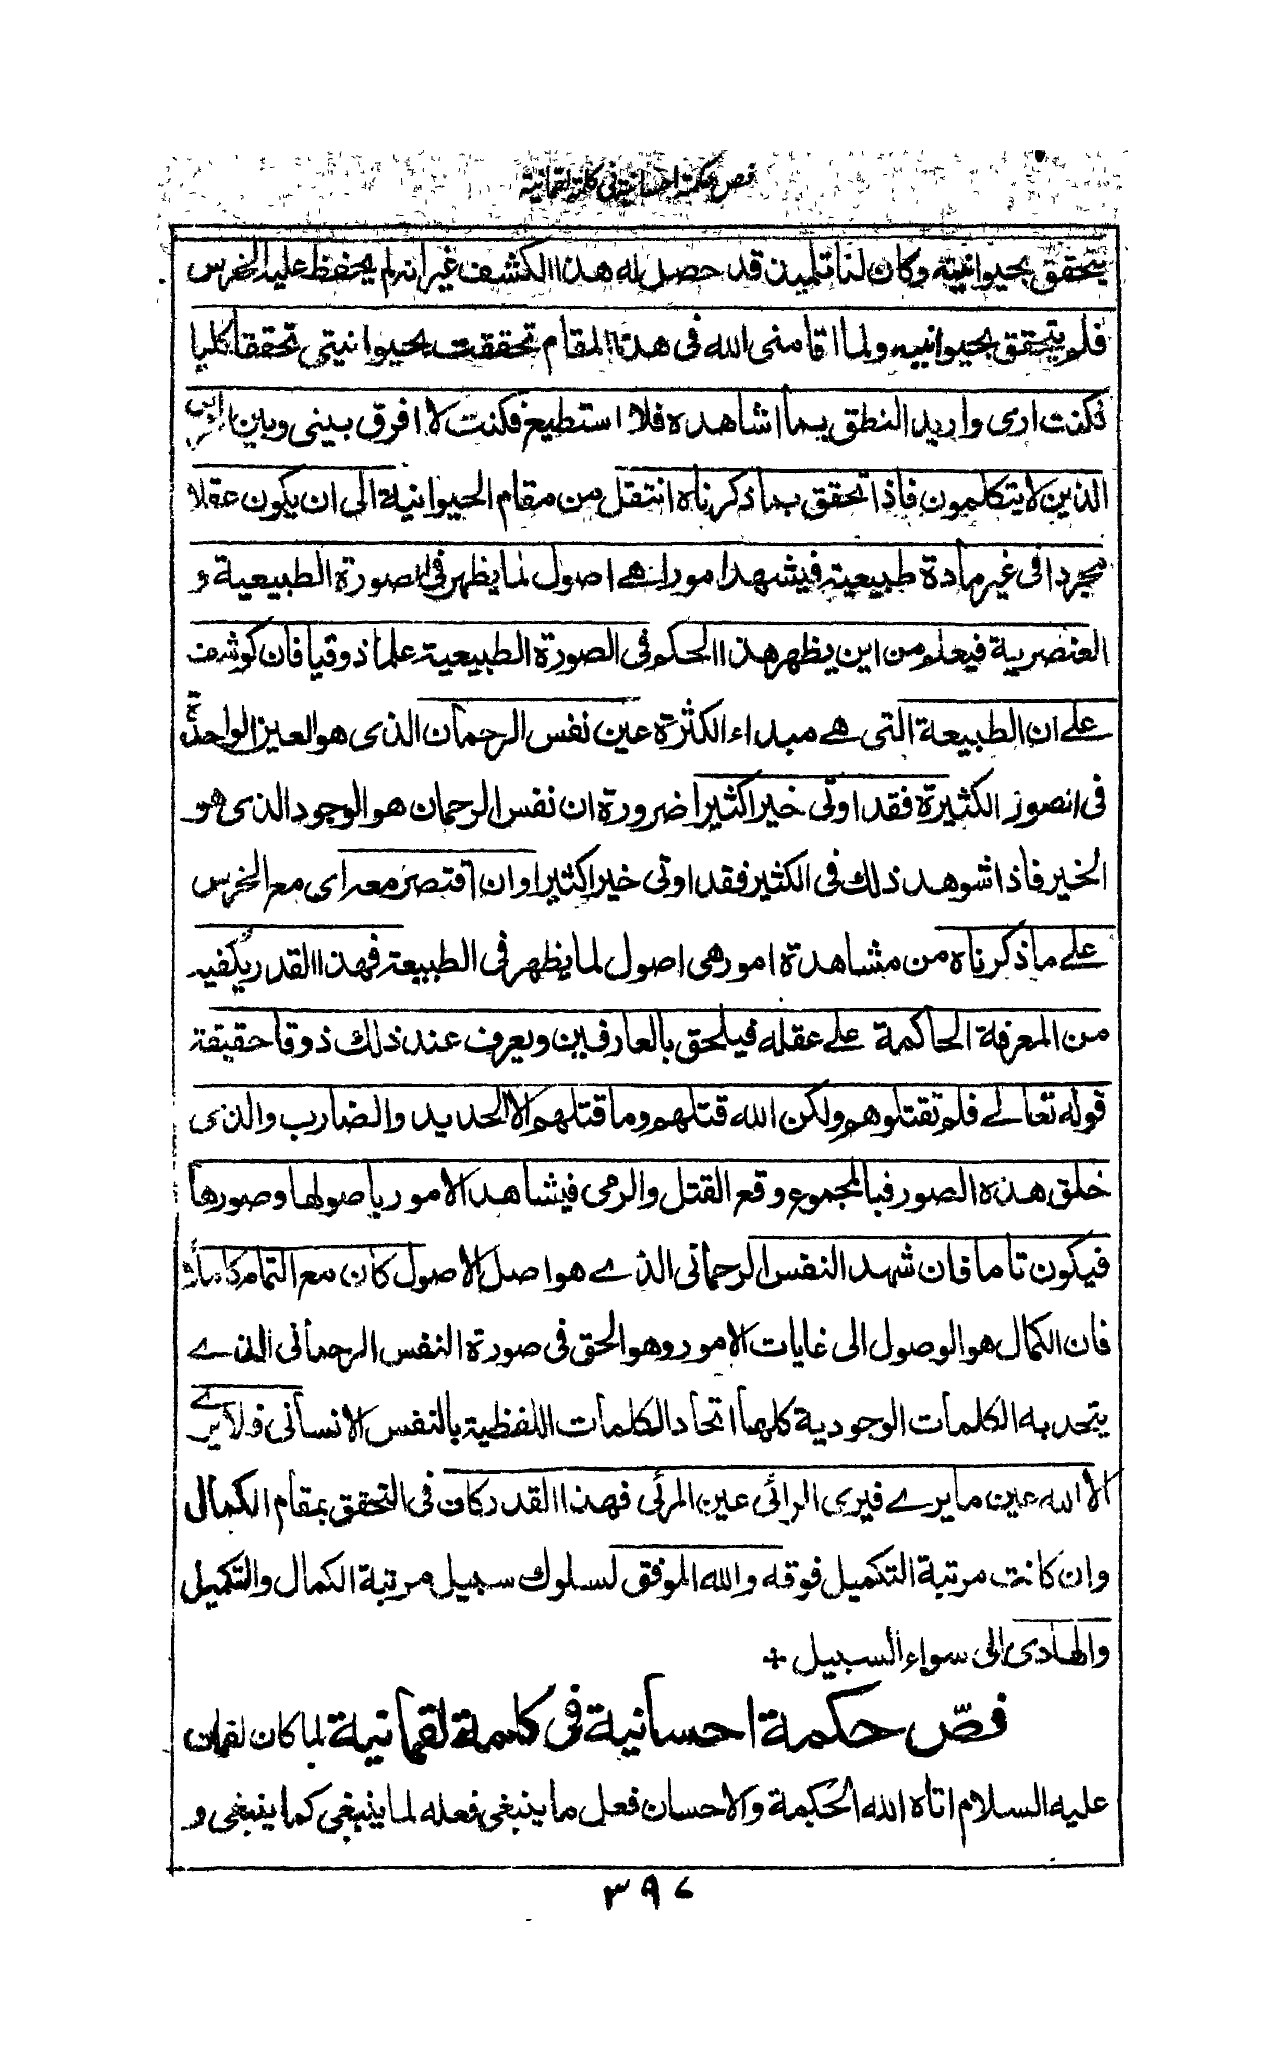 فص حكمة احسانية في كلمة لقمانية
يتحقق بحيوانيته وكان لنا تلميذ قد حصل له هذا الكشف غير انه لم يحفظ عليه الخرس
فلم يتحقق بحيوانيته ولما اقامني الله في هذا المقام تحققت بحيوانيتي تحققا كليا
فكنت ارى واريد النطق بما اشاهده فلا استطيع فكنت لا افرق بيني وبين الخرس
الذين لا يتكلمون فاذا تحقق بما ذكرناه انتقل من مقام الحيوانية الى ان يكون عقلا
مجردا في غير مادة طبيعية فيشهد امورا هے اصول لما يظهر في الصورة الطبيعية و
العنصرية فيعلم من اين يظهر هذا الحكم في الصورة الطبيعية علما ذوقيا فان كوشف
علے ان الطبيعة التي هے مبداء الكثرة عين نفس الرحمان الذى هو العين الواحدة
في الصور الكثيرة فقد اوتى خيرا كثيرا ضرورة ان نفس الرحمان هو الوجود الذى هو
الخير فاذا شوهد ذلك في الكثير فقد اوتى خيرا كثيرا وان اقتصر معه اى مع الخرس
علے ما ذكرناه من مشاهدة امور هى اصول لما يظهر في الطبيعة فهذا القدر يكفيه
من المعرفة الحاكمة علے عقله فيلحق بالعارفين ويعرف عند ذلك ذوقا حقيقة
قوله تعالے فلم تقتلوهم ولكن الله قتلهم وما قتلهم الا الحديد والضارب والذى
خلق هذه الصور فبالمجموع وقع القتل والرمى فيشاهد الامور باصولها وصورها
فيكون تاما فان شهد النفس الرحمانى الذے هو اصل الاصول كان مع التمام كاملا
فان الكمال هو الوصول الى غايات الامور وهو الحق في صورة النفس الرحمانى الذے
يتحد به الكلمات الوجودية كلها اتحاد الكلمات اللفظية بالنفس الانسانى فلا يرے
الا الله عين ما يرے فيرى الرائى عين المرئى فهذا القدر كاف في التحقق بمقام الكمال
وان كانت مرتبة التكميل فوقه والله الموفق لسلوك سبيل مرتبة الكمال والتكميل
والهادى الى سواء السبيل +
فصّ حكمة احسانية في كلمة لقمانية لما كان لقمان
عليه السلام اتاه الله الحكمة والاحسان فعل ما ينبغي فعله لما ينبغي كما ينبغي و
٣٩٧